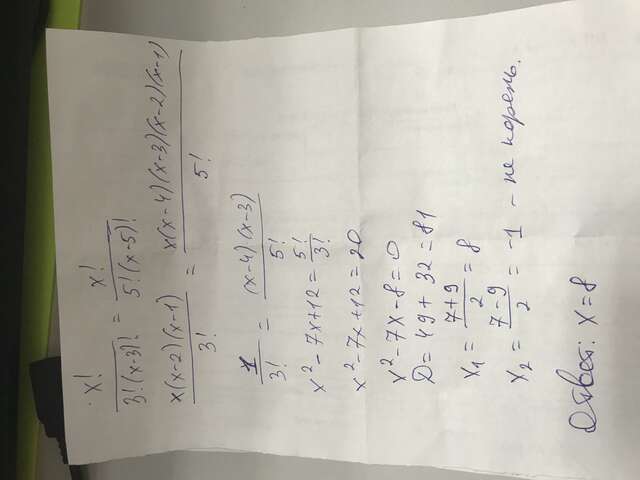 x! / 3!(x-3)! = x! / 5!(x-5)!
x(x-2)(x-1) / 3! = x(x-4)(x-3)(x-2)(x-1) / 5!
1 / 3! = (x-4)(x-3) / 5!
x² - 7x + 12 = 5! / 3!
x² - 7x + 12 = 20
x² - 7x - 8 = 0
D = 49 + 32 = 81
x₁ = 7+9 / 2 = 8
x₂ = 7-9 / 2 = -1 - не корень.
Ответ: x = 8